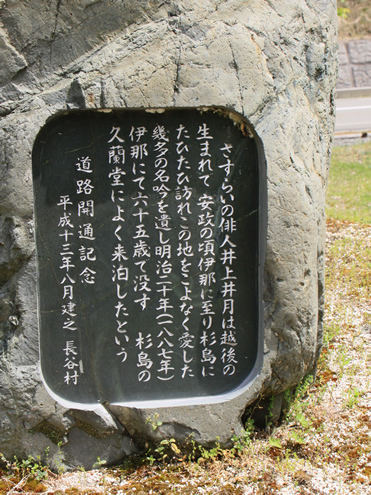 さすらいの俳人井上井月は越後の
生まれで 安政の頃伊那に至り杉島に
たびたび訪れこの地をこよなく愛した
幾多の名吟を遺し明治二十年(一八八七年)
伊那にて六十五歳で没す 杉島の
久蘭堂によく来泊したという
道路開通記念
平成十三年八月建之 長谷村